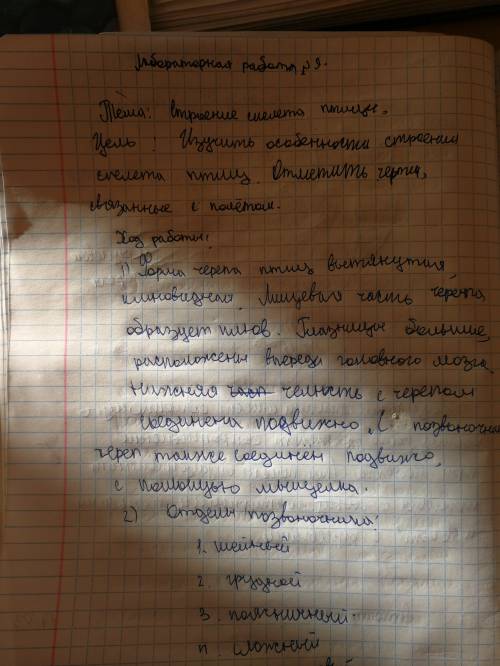 Лабораторная работа №9.
Тема: Строение скелета птицы.
Цель: Изучить особенности строения
скелета птиц. Отметить черты,
связанные с полётом.
Ход работы:
1) Форма черепа птиц вытянутая,
клиновидная. Лицевая часть черепа
образует клюв. Глазницы большие,
расположены впереди головного мозга.
Нижняя част челюсть с черепом
соединена подвижно. С позвоночни
череп также соединён подвижно,
с помощью мыщелка.
2) Отделы позвоночника:
1. шейный
2. грудной
3. поясничный
4. сложный